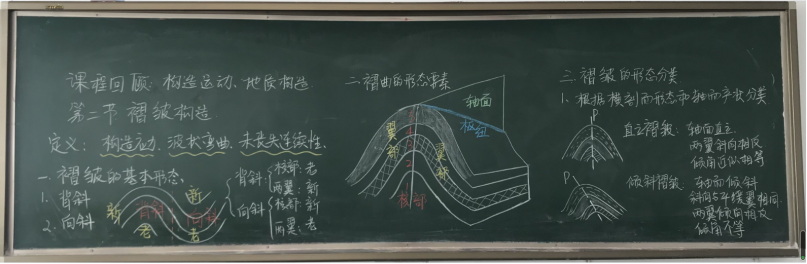 课程回顾：构造运动、地质构造
第二节 褶皱构造
定义：构造动力、波状弯曲、未丧失连续性、
一、褶皱的基本形态
1. 背斜
2. 向斜
新
背斜
老
新
向斜
老
背斜
核部：老
两翼：新
向斜
核部：新
两翼：老
二、褶曲的形态要素
轴面
枢纽
翼部
翼部
核部
三、褶皱的形态分类
1、根据横剖面形态和轴面产状分类
P
直立褶皱：轴面直立
两翼斜向相反
倾角近似相等
P
倾斜褶皱：轴面倾斜
斜向与平缓翼相同
两翼倾向相反
倾角不等